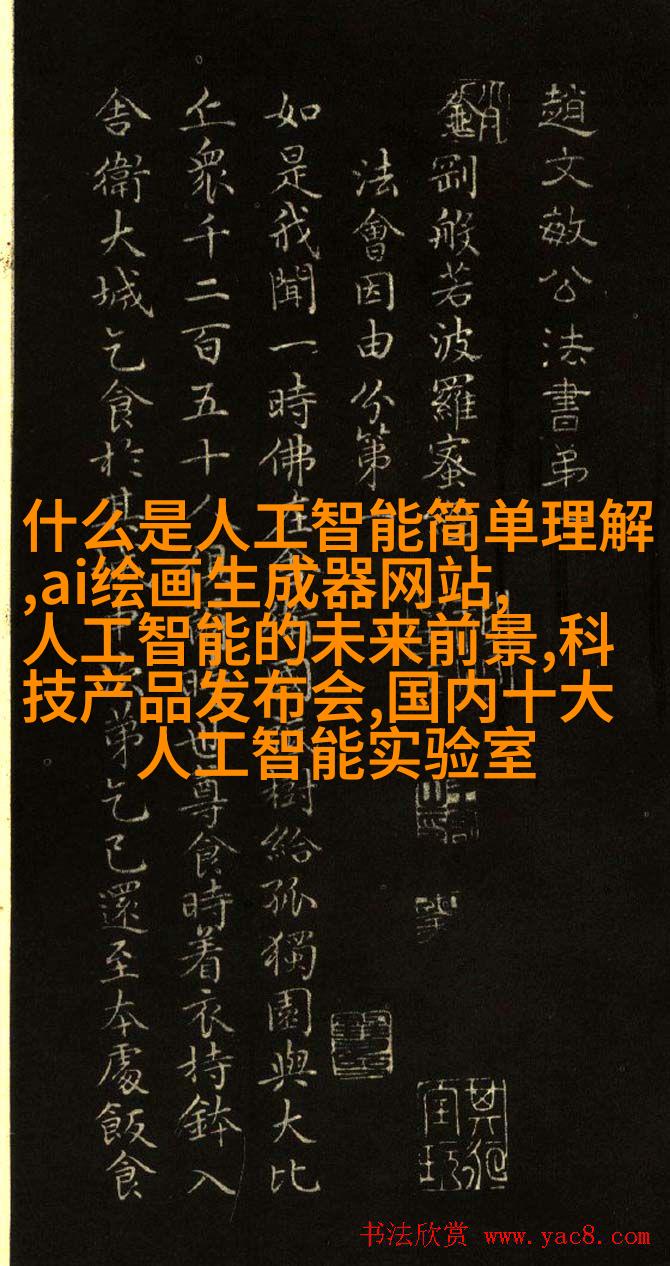 趙文敏公法書弟
金剛般若波羅蜜
法會因由分第
如是我聞一時佛在國樹給孤獨園與大比
丘眾千二百五十人時世尊食時着衣持鉢入
舎衛大城乞食於其中弟乞已還至本處飯食
什么是人工智能简单理解
,ai绘画生成器网站,
人工智能的未来前景,科
技产品发布会,国内十大
人工智能实验室
书法欣赏 www.yac8.com